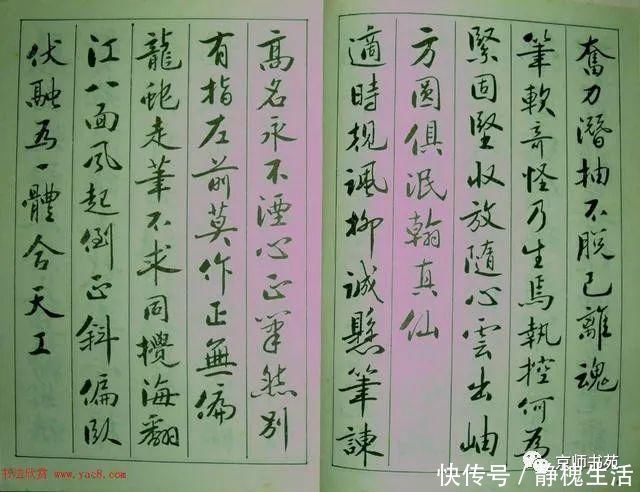 奮力潛抽不脫已離魂
筆軟奇怪乃生焉執控何為
緊固堅收放隨心雲出岫
方圓俱泯翰真仙
適時規諷柳誠懸筆諫
高名永不湮心正筆然別
有指左前莫作正無偏
龍蛇走筆不求同攪海翻
江八面風起倒正斜偏臥
伏融為一體合天工
书法欣赏 www.yac8.com
京师书苑
快传号/静槐生活